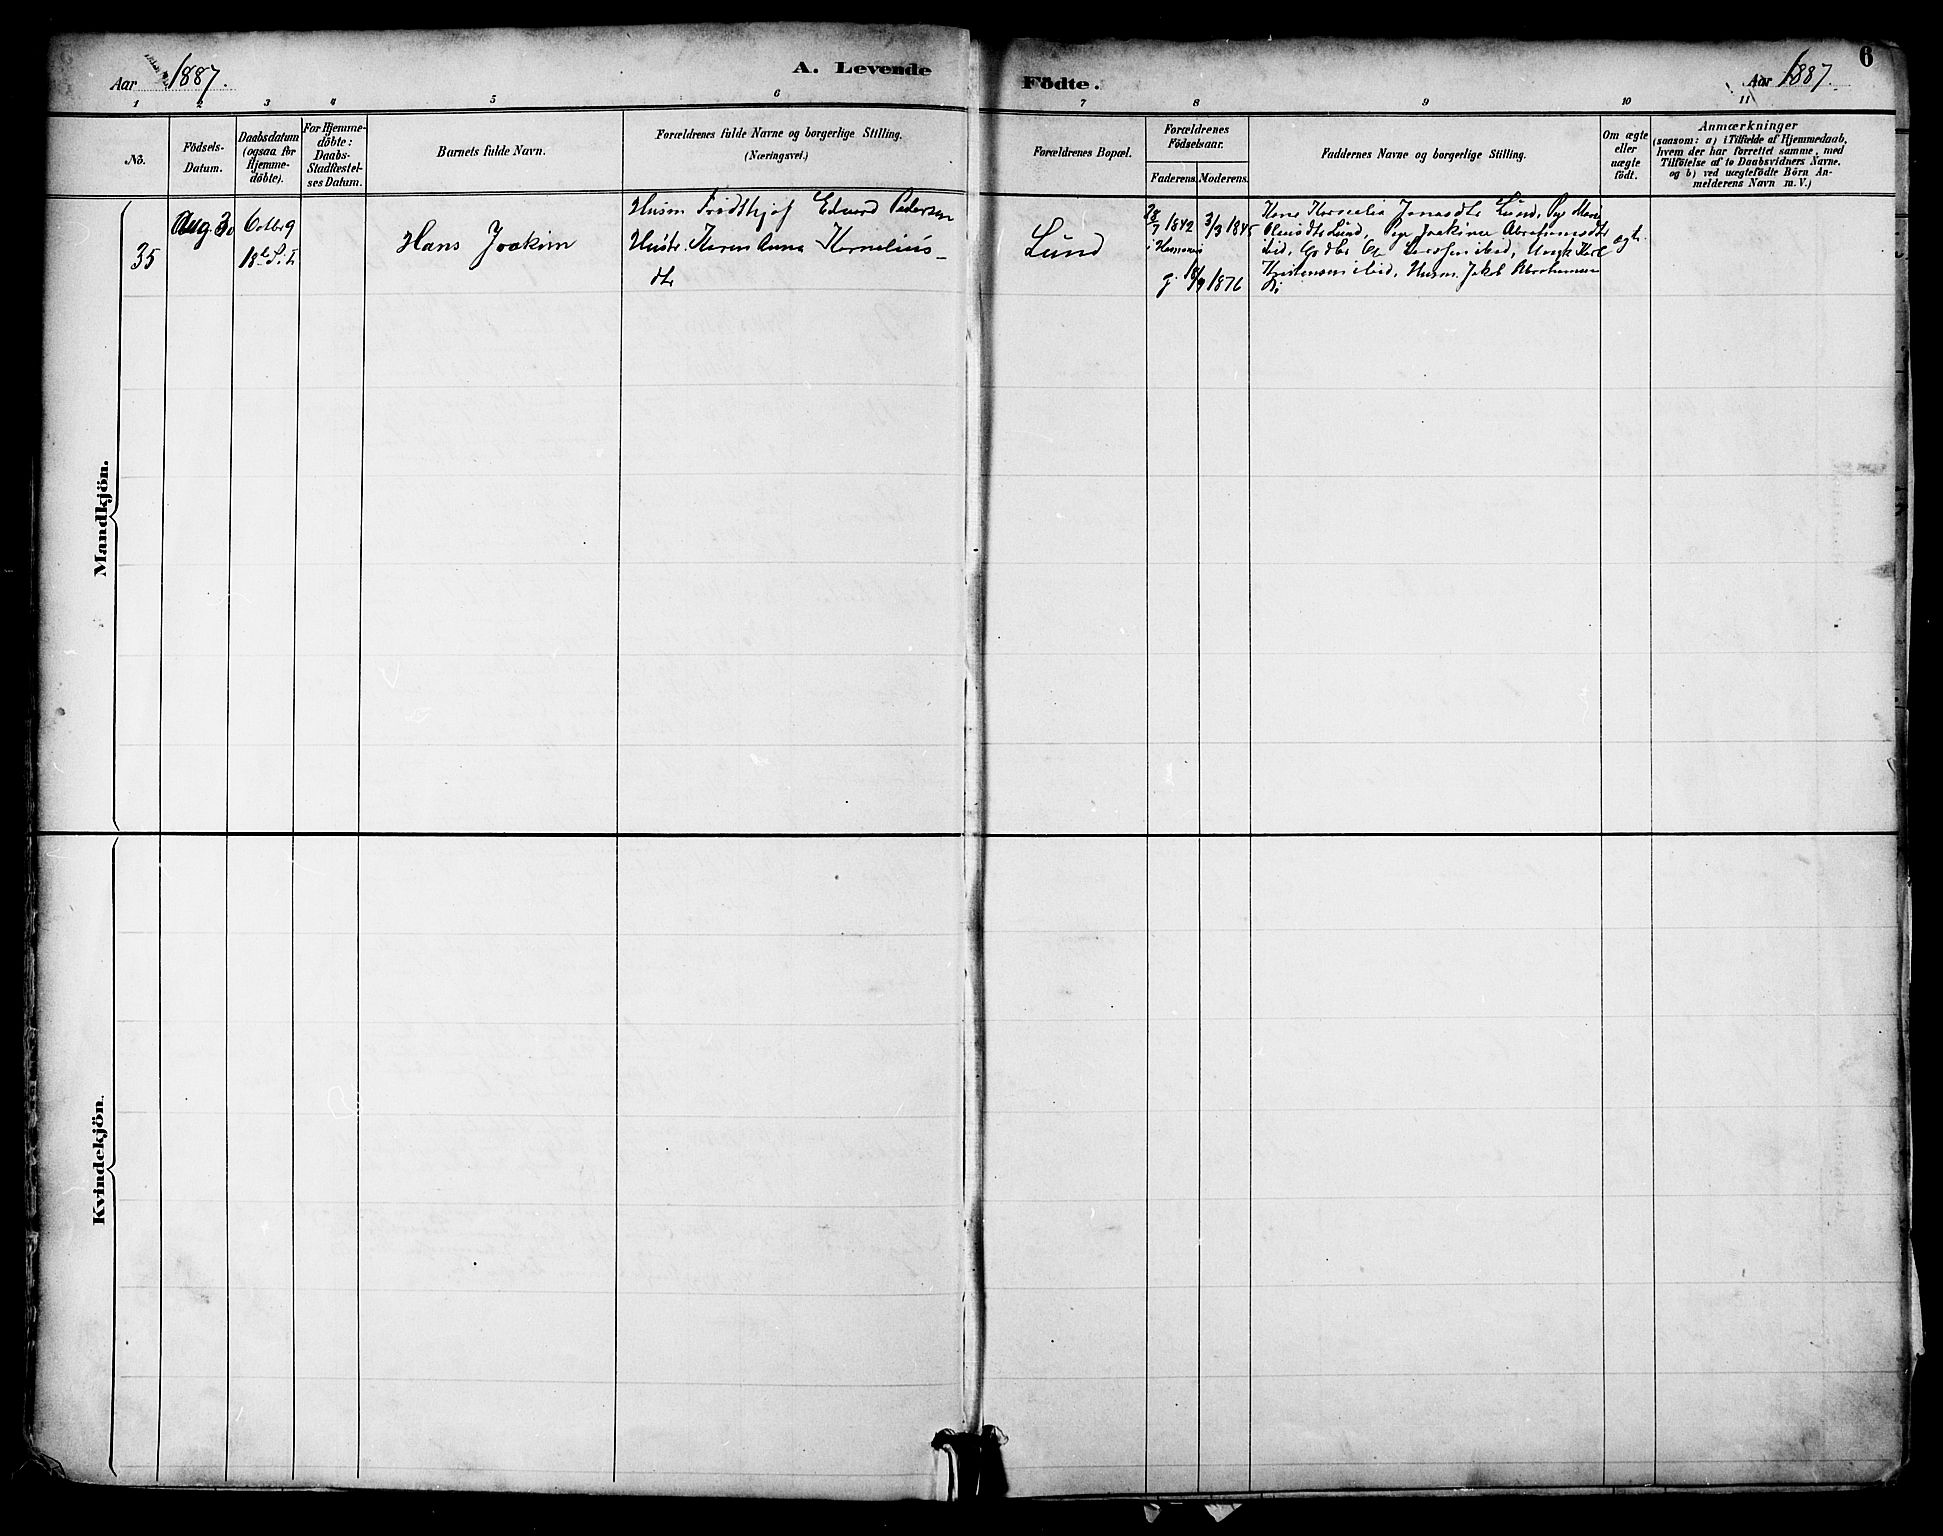 Aar 1887.
A. Levende
Födte.
Aar 1887.
6
1 2 3 4 5 6 7 8 9 10 11
No.
Födsels-
Datum.
Daabsdatum
(ogsaa for
Hjemme-
döbte).
For Hjemme-
döbte:
Daabs-
Stadfæstel-
ses Datum.
Barnets fulde Navn.
Forældrenes fulde Navne og borgerlige Stilling.
(Næringsvei.)
Forældrenes Bopæl.
Forældrenes
Födselsaar.
Faderens. Moderens.
Faddernes Navne og borgerlige Stilling.
Om ægte
eller
uægte
födt.
Anmærkninger
(saasom: a) i Tilfælde af Hjemmedaab,
hvem der har forrettet samme, med
Tilföielse af to Daabsvidners Navne.
og b) ved uægtefödte Börn An-
melderens Navn m. V.)
Mandkjön.
35
Aug 30
Octbr 9
18de S. e. T.
Hans Joakim
Husm Fridthjof Edvard Pedersen
Hustr. Karen Anna Kornelius-
dtr
Lund
28/7 1842
3/9 1845
i
g. 1876
Kone Kornelia Jonasdtr Lund, Pige
Lund, Pige Joakine Abrahamsdtr
ibid, Ungk Karl
Kristensen ibid, Husm. Jakob Abrahamsen
ægte
Kvindekjön.